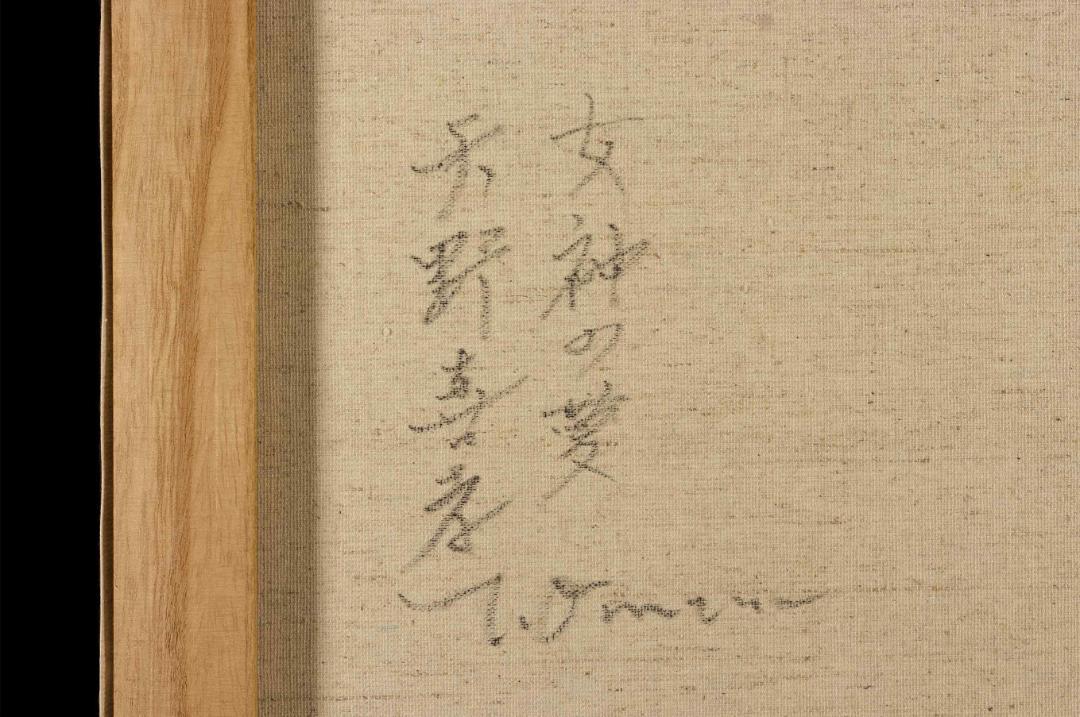 女神の夢
天野喜孝
Y. Amano